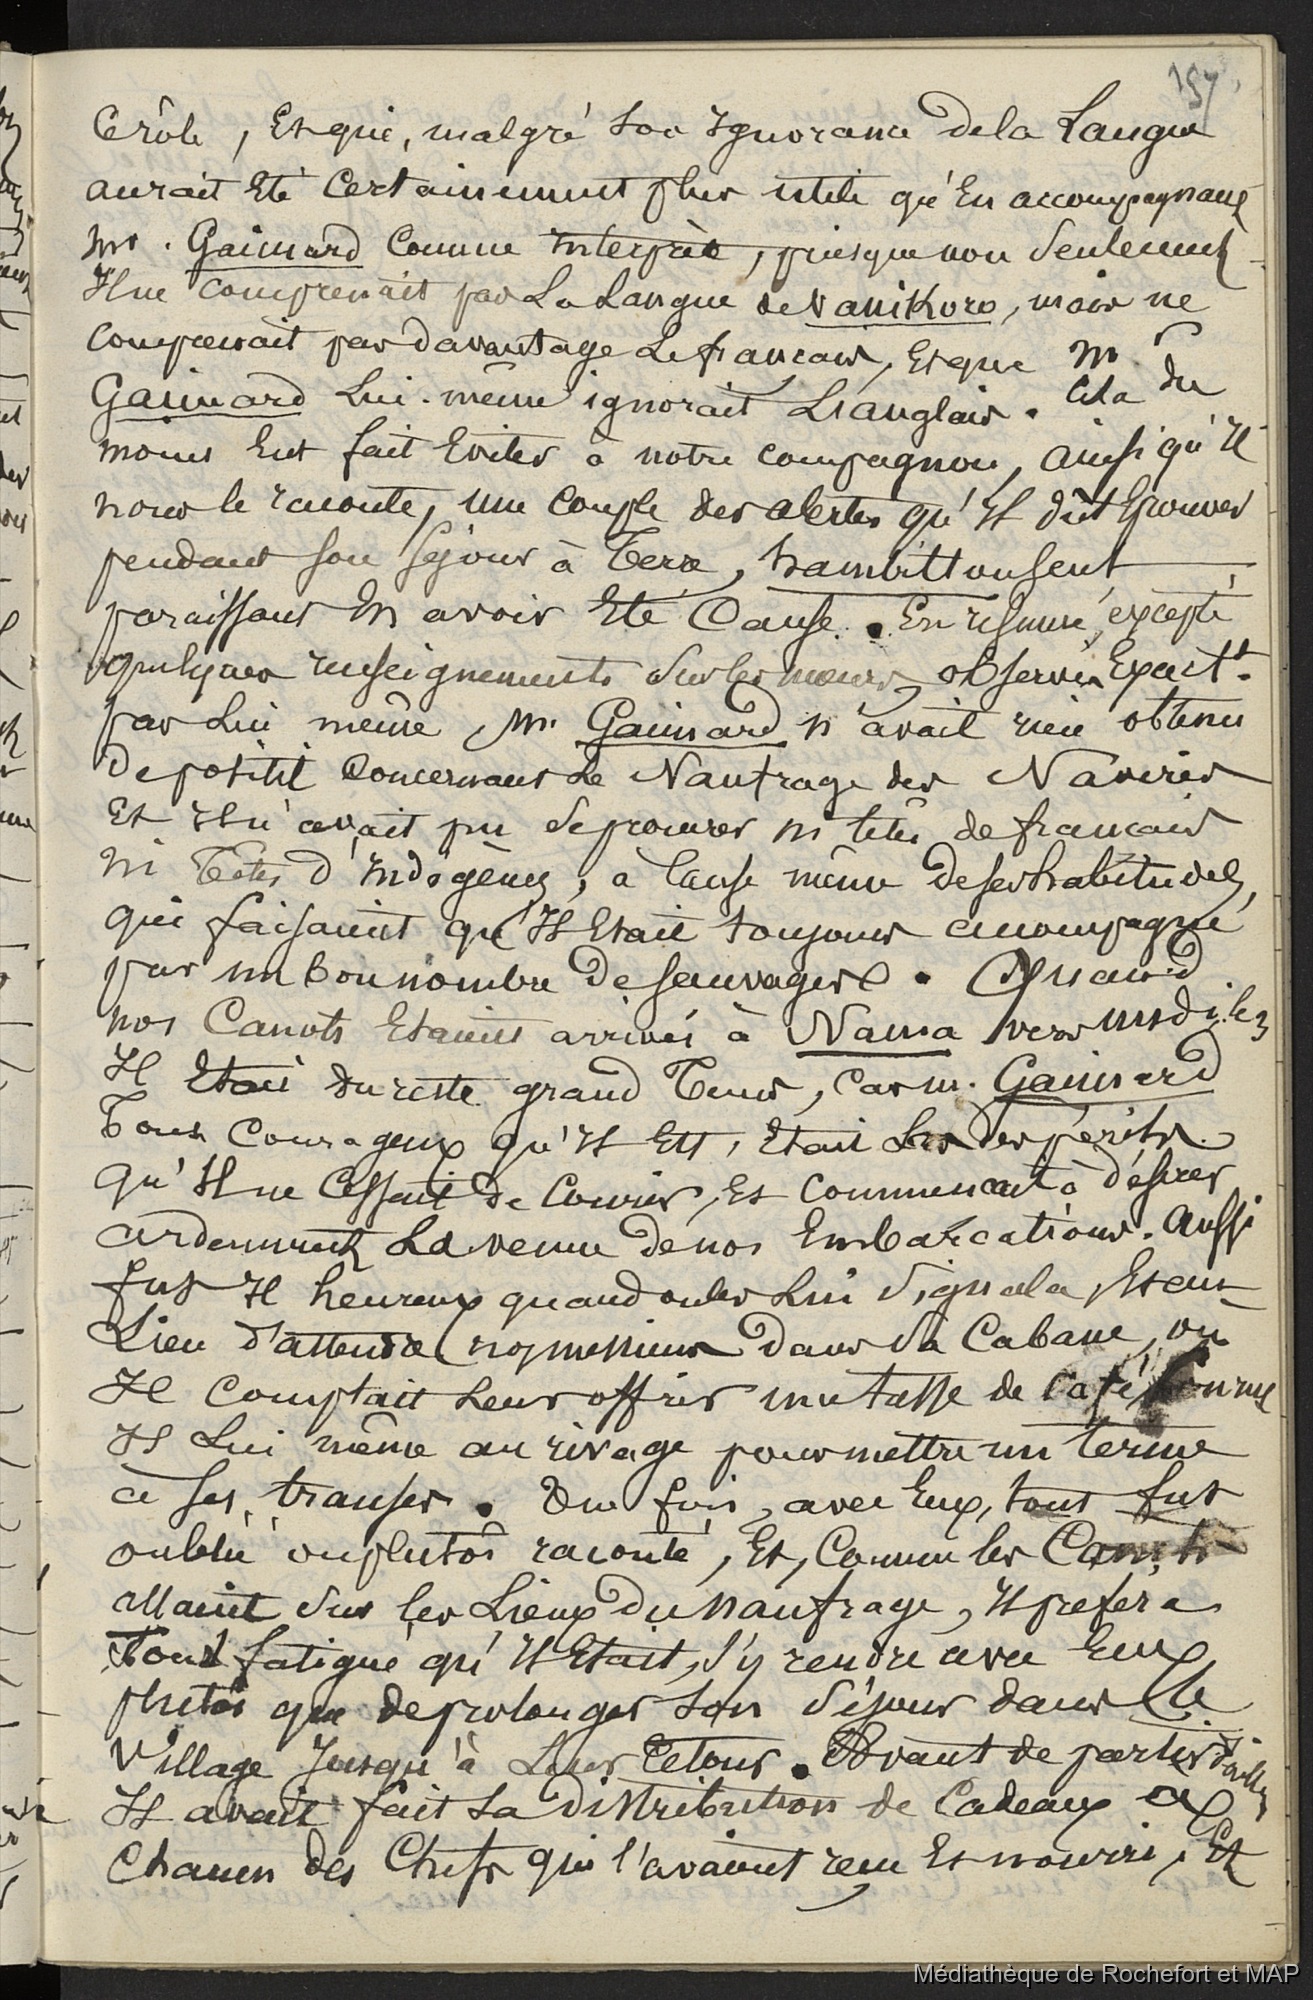 157
Ce rôle, Et que, malgré son Ignorance de la Langue
aurait Eté Certainement plus utile qu'En accompagnant
Mr. Gaimard Comme Interprète, puisque non Seulement
Il ne Comprenait pas La Langue de Vanikoro, mais ne
Comprenait pas davantage Le français, Et que M.
Gaimard Lui-même ignorait L'anglais. Cela du
moins Eut fait Eviter à notre compagnon, ainsi qu'Il
nous le raconte, une Couple des alertes qu'Il dût Eprouver
pendant son séjour à Terre, hambilton seul
paraissant En avoir Eté Cause. En résumé, excepté
quelques renseignements Sur les mœurs, observés Exactt.
par Lui même, Mr Gaimard n'avait rien obtenu
De positif Concernant Le Naufrage des Navires
Et Il n'avait pu Se procurer ni têtes de français
ni Têtes d'Indigènes, à Cause même De ses habitudes,
qui faisaient qu'Il Etait toujours accompagné
par un bon nombre De sauvages. Quand
nos Canots Etaient arrivés à Nama vers midi le 3
Il Etait du reste grand Tems, Car m. Gaimard
Tout Courageux qu'Il Est, Etait Las Des périls
qu'Il ne Cessait De Courir, Et Commencait à désirer
ardemment La venue De nos Embarcations. Aussi
fut Il heureux quand on les Lui Signala, Et au
Lieu d'attendre nos messieurs Dans Sa Cabane, où
Il Comptait Leur offrir une tasse de Café,
Il Lui même au rivage pour mettre un terme
à ses transes. Une fois, avec Eux, tout fut
oublié ou plutôt raconté, Et, Comme les Canots
allaient Sur les Lieux Du naufrage, Il préféra
Tout fatigué qu'Il Etait, S'y rendre avec Eux
plutôt que de prolonger Son Séjour dans Ce
Village Jusqu'à Leur Retour. Avant de partir d'ailleurs
Il avait fait Sa Distribution de Cadeaux à
Chacun des Chefs qui l'avaient reçu Et nourri, Et
Médiathèque de Rochefort et MAP